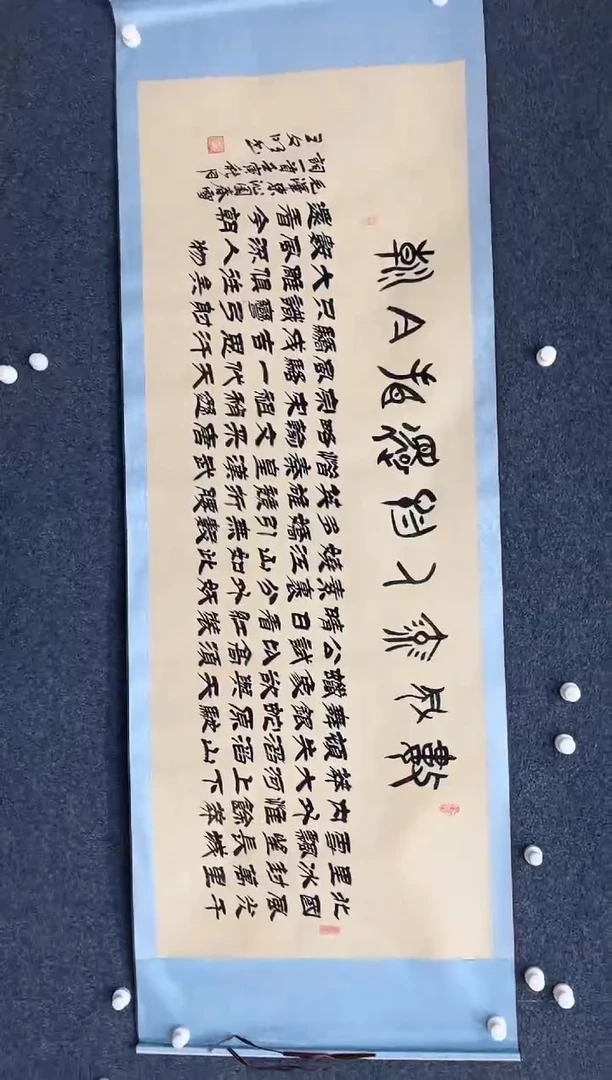 數風流人物還看今朝
北國風光千
里冰封萬里
雪飄望長城
內外惟餘莽
莽大河上下
頓失滔滔山
舞銀蛇原馳
蠟象欲與天
公試比高須
晴日看紅裝
素裹分外妖
嬈江山如此
多嬌引無數
英雄競折腰
惜秦皇漢武
略輸文采唐
宗宋祖稍遜
風騷一代天
驕成吉思汗
只識彎弓射
大雕俱往矣
數風流人物
還看今朝
毛澤東沁園春雪
詞一首壬寅秋月
王文